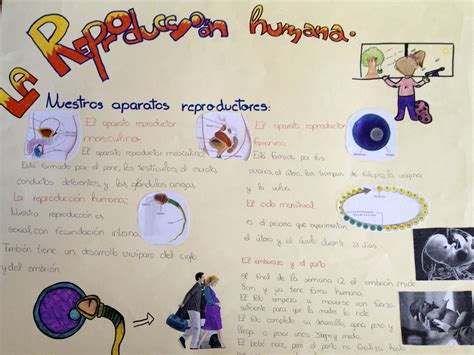 LA REPRODUCCIÓN humana.
Nuestros aparatos reproductores:
El aparato reproductor
masculino.
El aparato reproductor masculino
Está formado por el pene, los testículos, el escroto,
conductos deferentes, y las glándulas anejas
La reproducción humana:
Nuestra reproducción es
sexual, con fecundación interna
También tiene un desarrollo vivíparo del cigoto
y del embrión
El aparato reproductor
femenino.
Está formado por los
ovarios, el útero, las trompas de falopio, la vagina
y la vulva.
El ciclo menstrual
es el proceso que experimentan
el útero y el óvulo durante 28 días
El embarazo y el parto
al final de la semana 12 el embrión mide
8cm y ya tene forma humana.
El feto empieza a moverse con fuerza
suficiente para que la madre lo note
El feto completa su desarrollo, gana peso y
llega a pesar unos 3kg y medio.
El bebé nace, por el parto